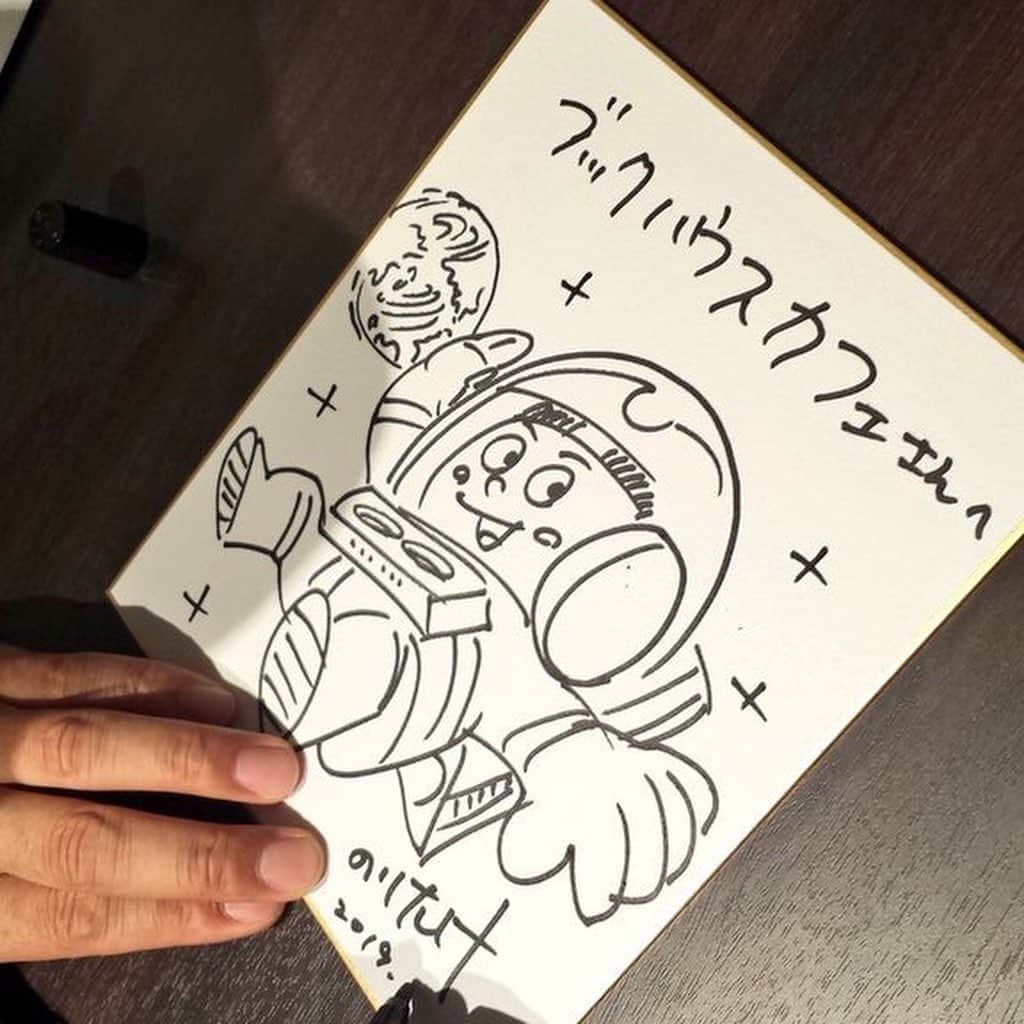 ブックハウスカフェさんへ
のりたけ
2019.